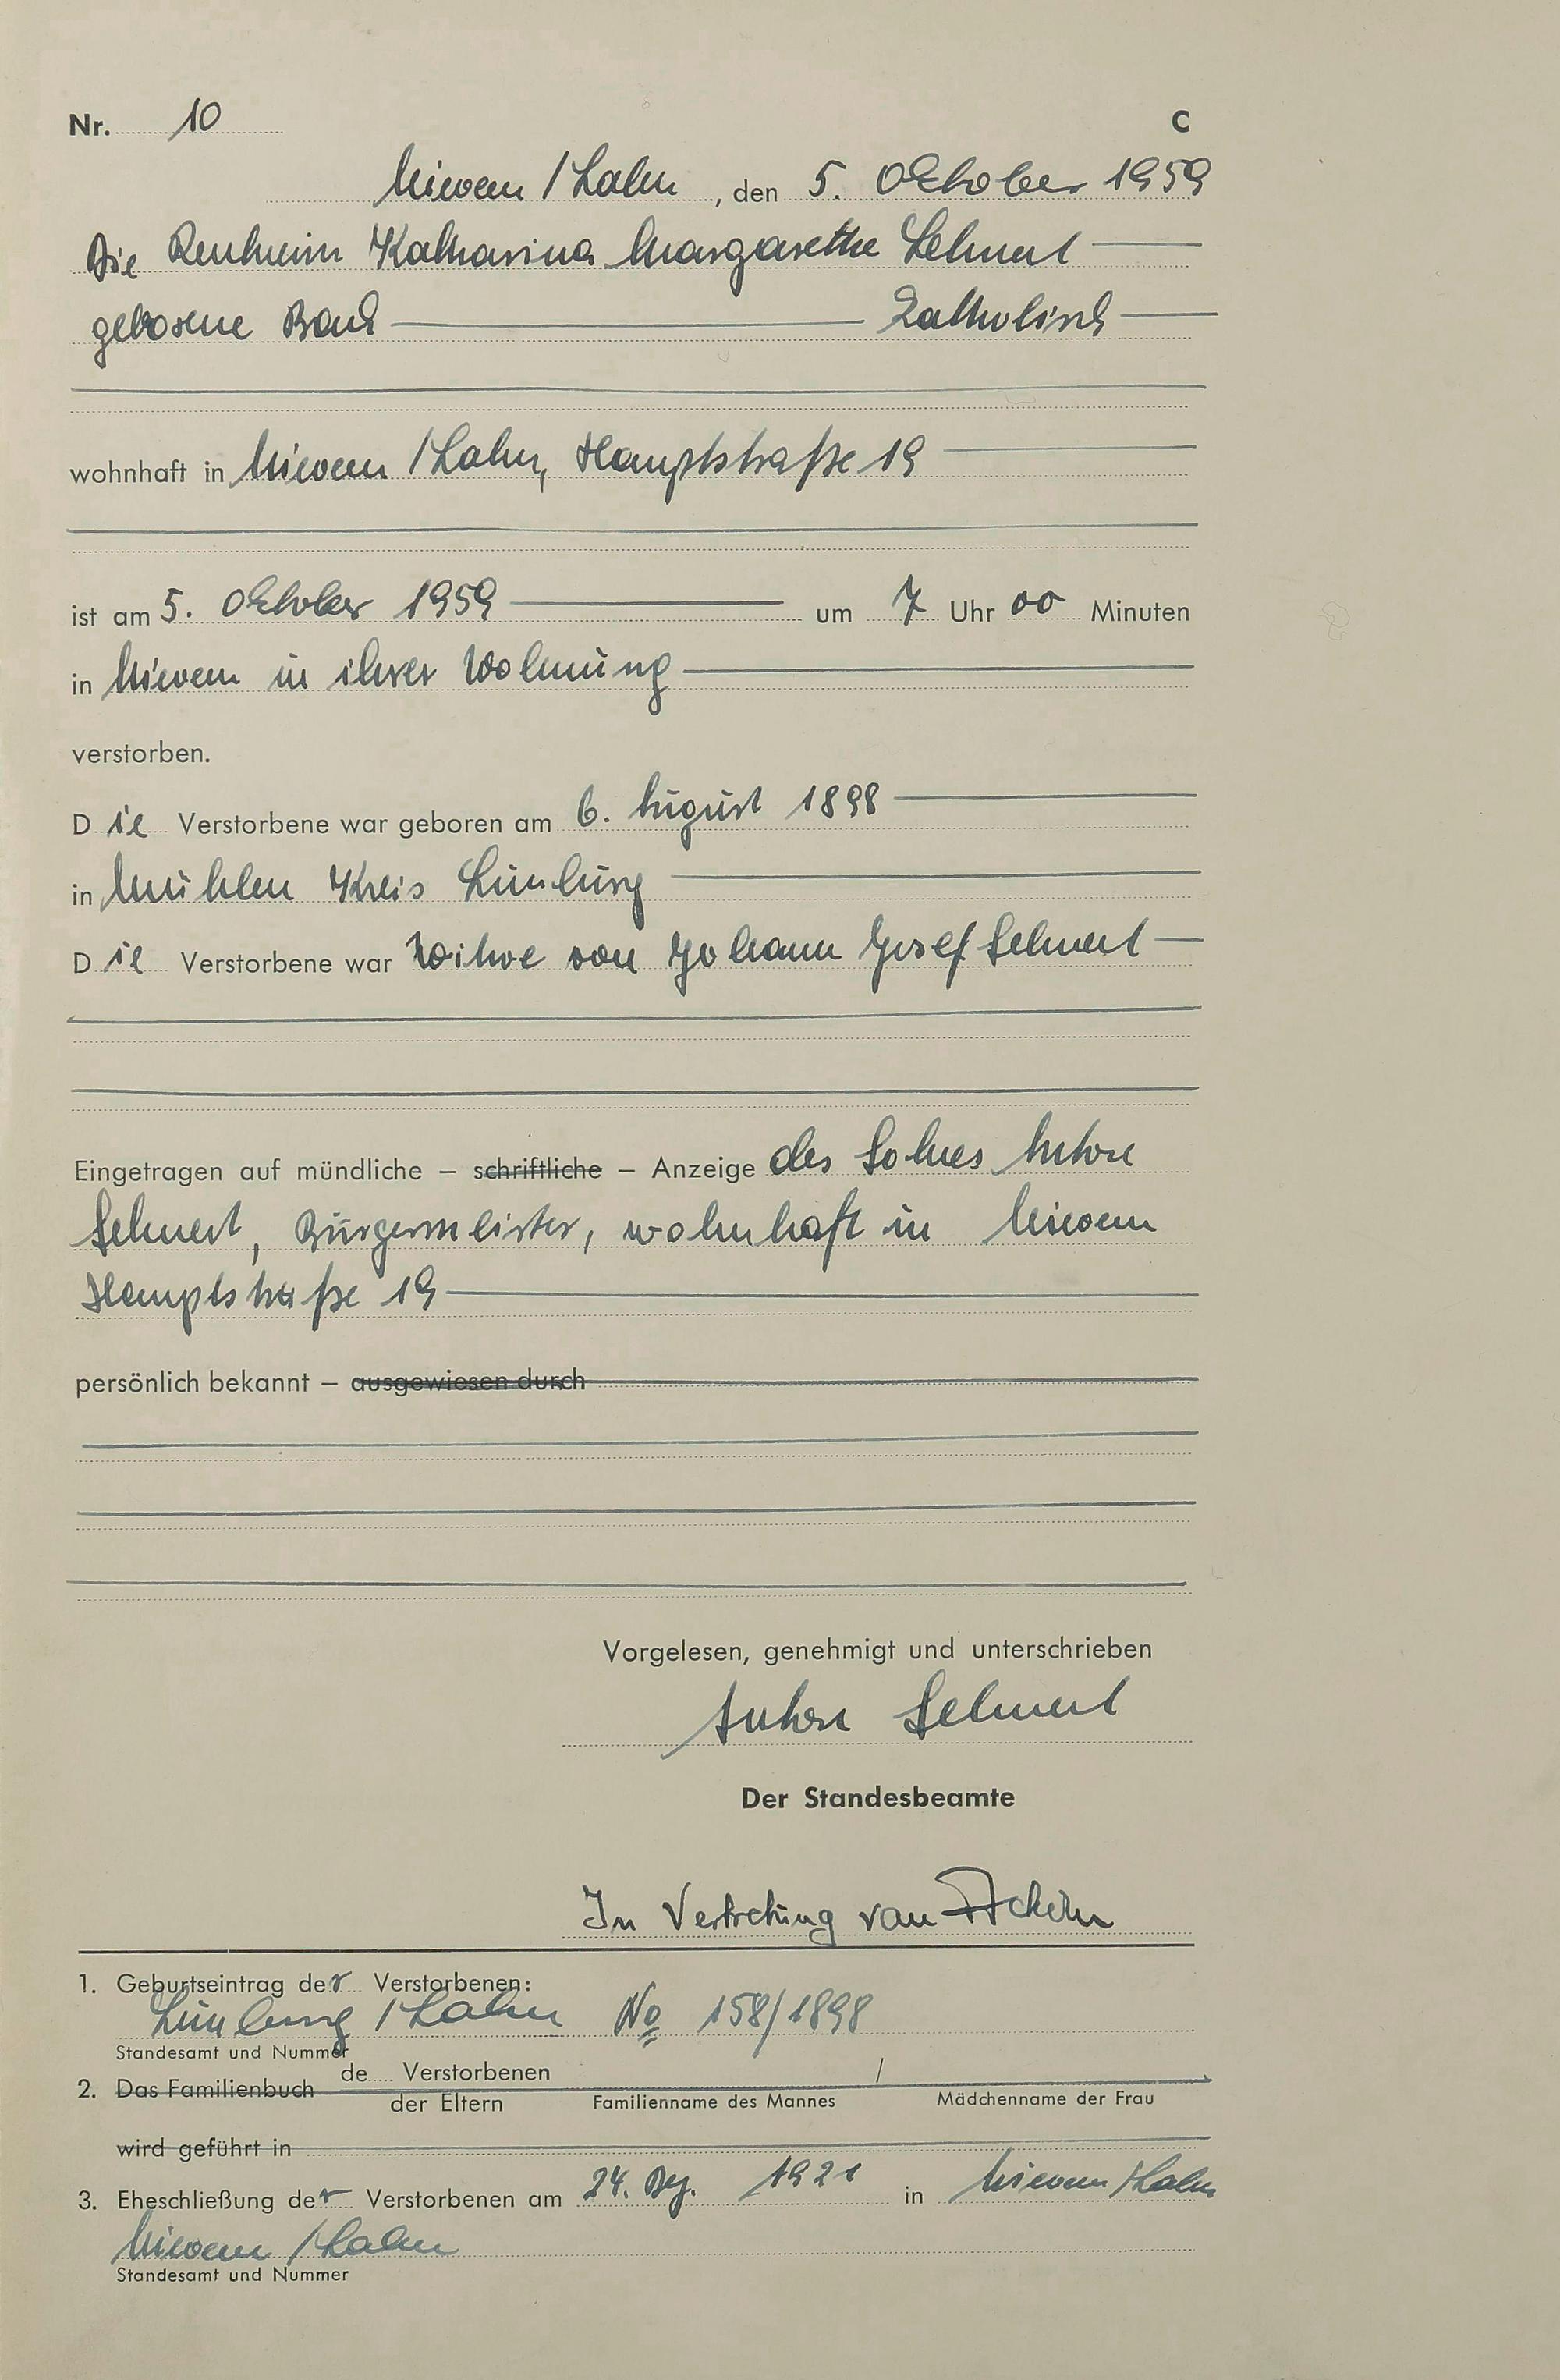 Nr. 10 C
Nievern / Lahn, den 5. Oktober 1959
Die Rentnerin Katharina Margarethe Lehnert
geborene Baus katholisch
wohnhaft in Nievern / Lahn, Hauptstraße 19
ist am 5. Oktober 1959 um 7 Uhr 00 Minuten
in Nievern in ihrer Wohnung
verstorben.
Die Verstorbene war geboren am 6. August 1898
in Mühlen Kreis Limburg
Die Verstorbene war Witwe von Johann Josef Lehnert
Eingetragen auf mündliche – schriftliche – Anzeige des Sohnes Anton
Lehnert, Bürgermeister, wohnhaft in Nievern
Hauptstraße 19
persönlich bekannt – ausgewiesen durch
Vorgelesen, genehmigt und unterschrieben
Anton Lehnert
Der Standesbeamte
In Vertretung van
1. Geburtseintrag der Verstorbenen:
Limburg / Lahn No 158/1898
Standesamt und Nummer
de Verstorbenen
2. Das Familienbuch
der Eltern Familienname des Mannes Mädchenname der Frau
wird geführt in
3. Eheschließung der Verstorbenen am 24. Dez. 1921 in Nievern / Lahn
Nievern / Lahn
Standesamt und Nummer